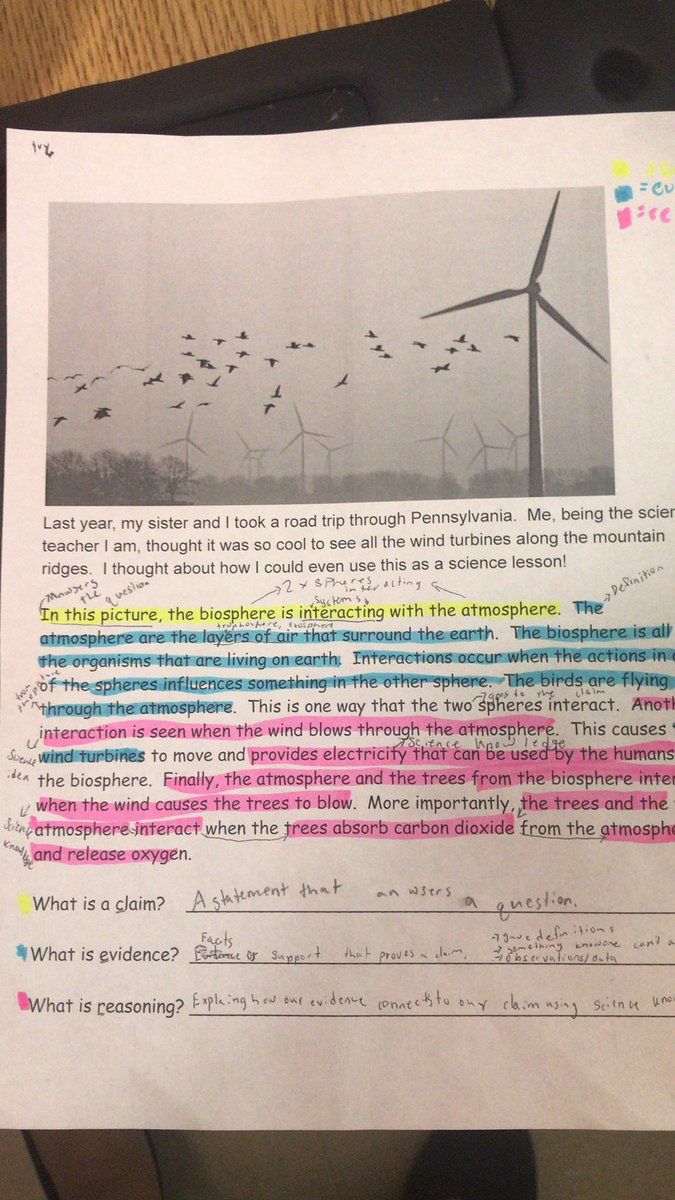 Ivy
= cl
= ev
= re
Last year, my sister and I took a road trip through Pennsylvania. Me, being the scien
teacher I am, thought it was so cool to see all the wind turbines along the mountain
ridges. I thought about how I could even use this as a science lesson!
Answers the question
2 spheres interacting
systems
Definition
In this picture, the biosphere is interacting with the atmosphere. The
troposphere, exosphere
atmosphere are the layers of air that surround the earth. The biosphere is all
the organisms that are living on earth. Interactions occur when the actions in o
of the spheres influences something in the other sphere. The birds are flying
from the picture
goes to the claim
through the atmosphere. This is one way that the two spheres interact. Anot
interaction is seen when the wind blows through the atmosphere. This causes
Science idea
science knowledge
wind turbines to move and provides electricity that can be used by the humans
the biosphere. Finally, the atmosphere and the trees from the biosphere inter
when the wind causes the trees to blow. More importantly, the trees and the
Science knowledge
atmosphere interact when the trees absorb carbon dioxide from the atmosphe
and release oxygen.
What is a claim? A statement that anwsers a question.
What is evidence? Facts or support that proves a claim.
→ gave definitions
→ something knowone can't a
→ observations/data
What is reasoning? Explaing how our evidence connects to our claim using science know